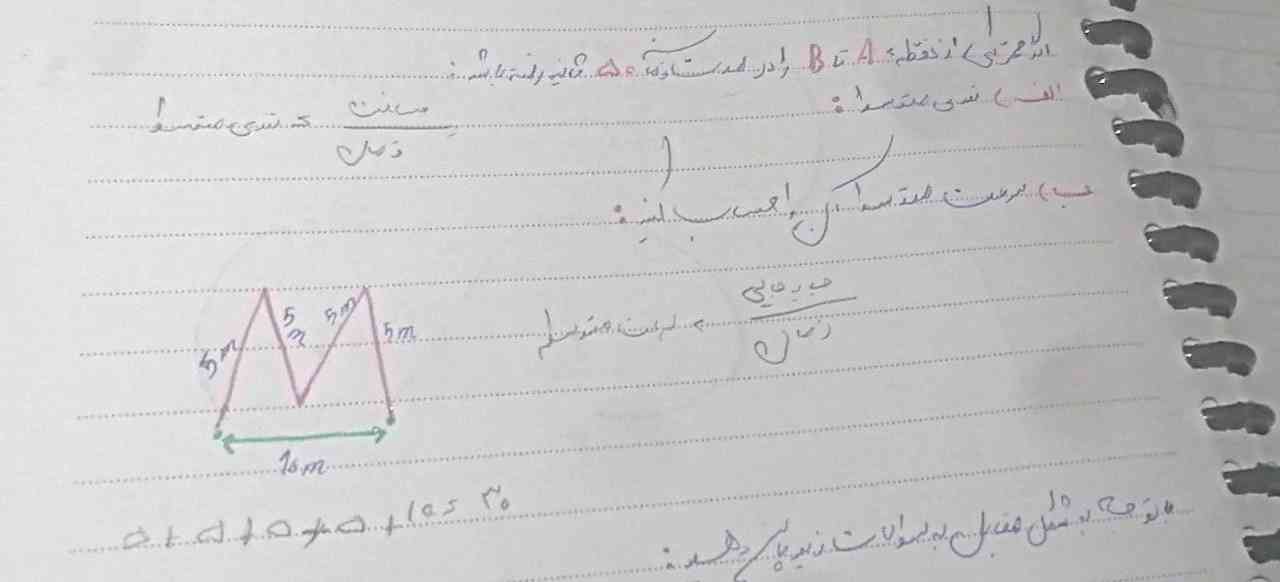 اگر متحرکی از نقطه A تا B را در مدت ۵۰ ثانیه رفته باشد:
الف) تندی متوسط:
مسافت
زمان
= تندی متوسط
ب) سرعت متوسط آن را حساب کنید:
جابجایی
زمان
= سرعت متوسط
5m 5m 5m 5m
10m
۵+۵+۵+۵+۱۰= ۳۰
با توجه به شکل مقابل به سوالات زیر پاسخ دهید: